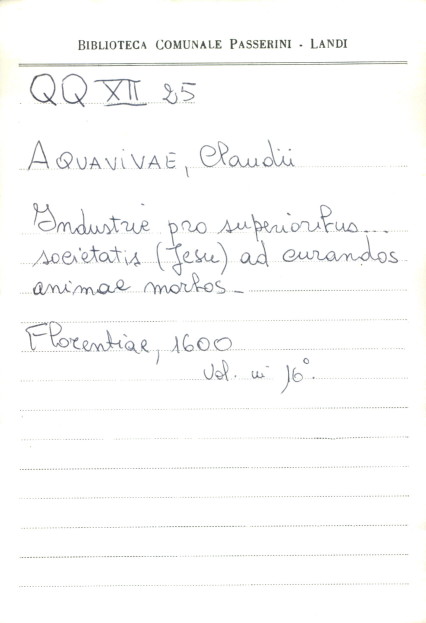 BIBLIOTECA COMUNALE PASSERINI - LANDI
QQ XII 25
AQUAVIVAE, Claudii
Industrie pro superioribus...
societatis (Jesu) ad curandos
animae morbos_
Florentiae, 1600
Vol. in 16°.